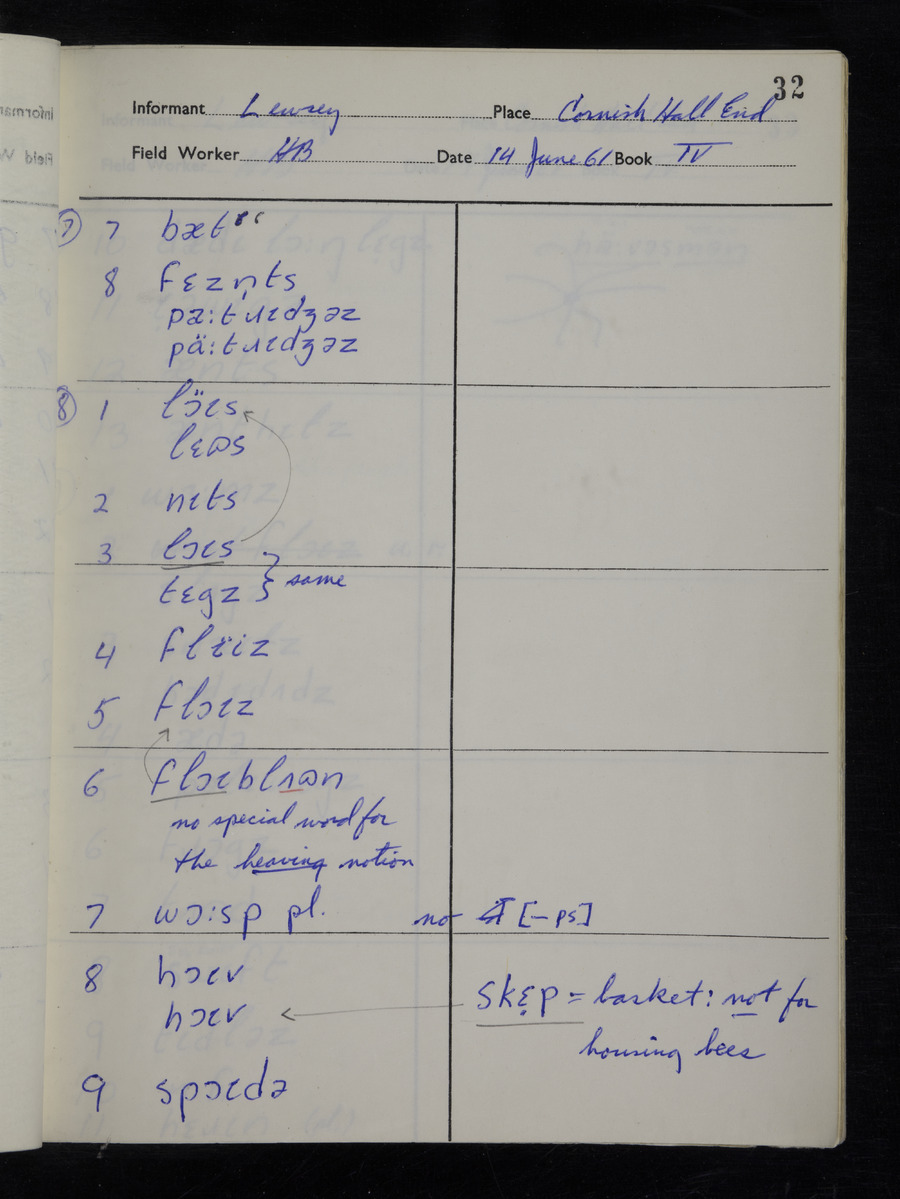 32
Informant Lewsey Place Cornish Hall End
Field Worker HB Date 14 June 61 Book IV
⑦ 7 bæt
8 fɛzn̩ts
pæ:tɹɪdʒəz
pä:tɹɪdʒəz
⑧ 1 lɔ̈ɪs
lɛɷs
2 nɪts
3 lɔɪs
tɛgz } same
4 flɛ̈iz
5 flɔɪz
6 flɔɪblɹɷn
no special word for
the heaving notion
7 wɔ:sp pl. not [-ps]
8 hɔɪv
hɔɪv
skɛ̝p = basket: not for
housing bees
9 spɔɪdə